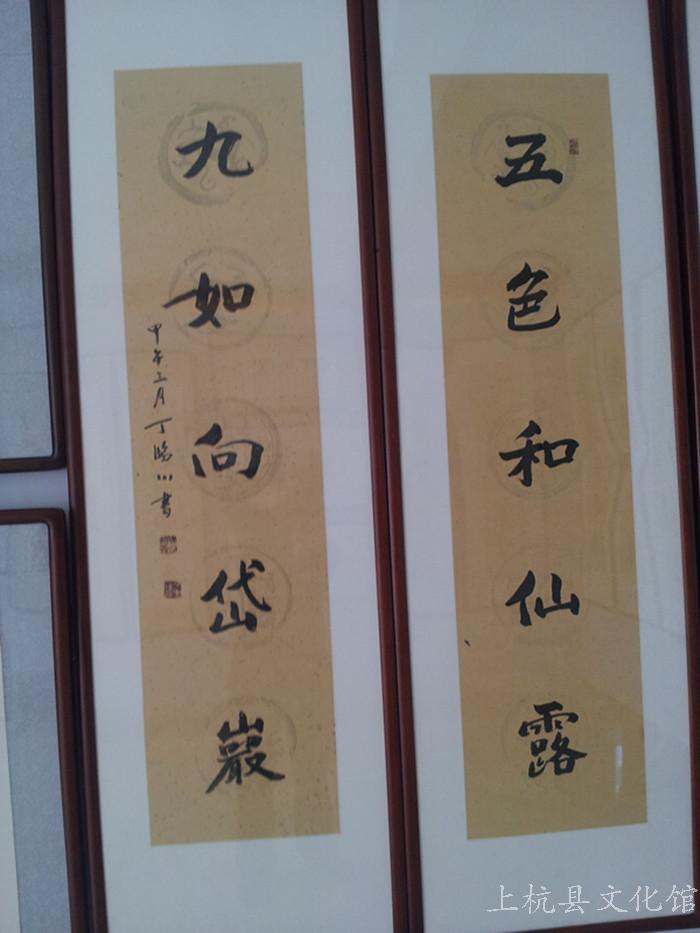 五色和仙露
九如向岱巖
甲午三月丁临川書
上杭县文化馆